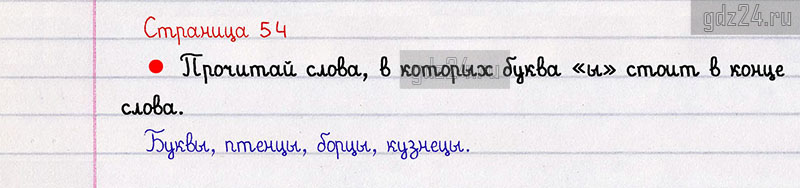 gdz24.ru
Страница 54
• Прочитай слова, в которых буква «ы» стоит в конце
слова.
Буквы, птенцы, борцы, кузнецы.